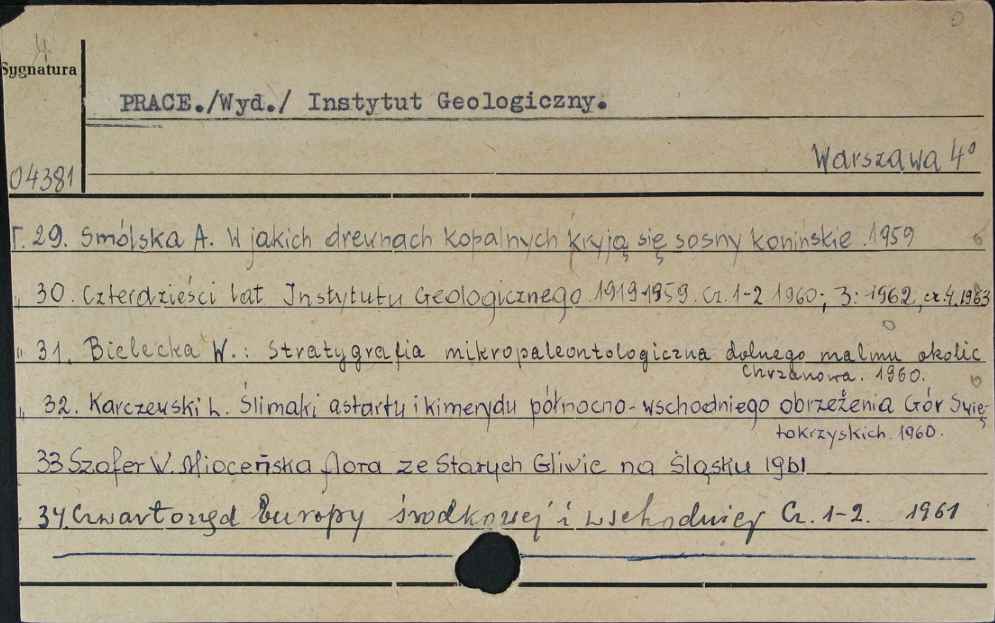 4
Sygnatura
PRACE./Wyd./ Instytut Geologiczny.
Warszawa 4°
04381
T. 29. Smólska A. W jakich drewnach kopalnych kryją się sosny konińskie. 1959
„ 30. Czterdzieści lat Instytutu Geologicznego 1919 1959. Cz. 1-2 1960; 3: 1962, cz. 4. 1963
„ 31. Bielecka W.: Stratygrafia mikropaleontologiczna dolnego malmu okolic
Chrzanowa. 1960.
„ 32. Karczewski L. Ślimaki astartu i kimerydu północno-wschodniego obrzeżenia Gór Świę-
tokrzyskich. 1960.
33 Szafer W. Mioceńska flora ze Starych Gliwic na Śląsku 1961
„ 34. Czwartorzęd Europy środkowej i wschodniej Cz. 1-2. 1961